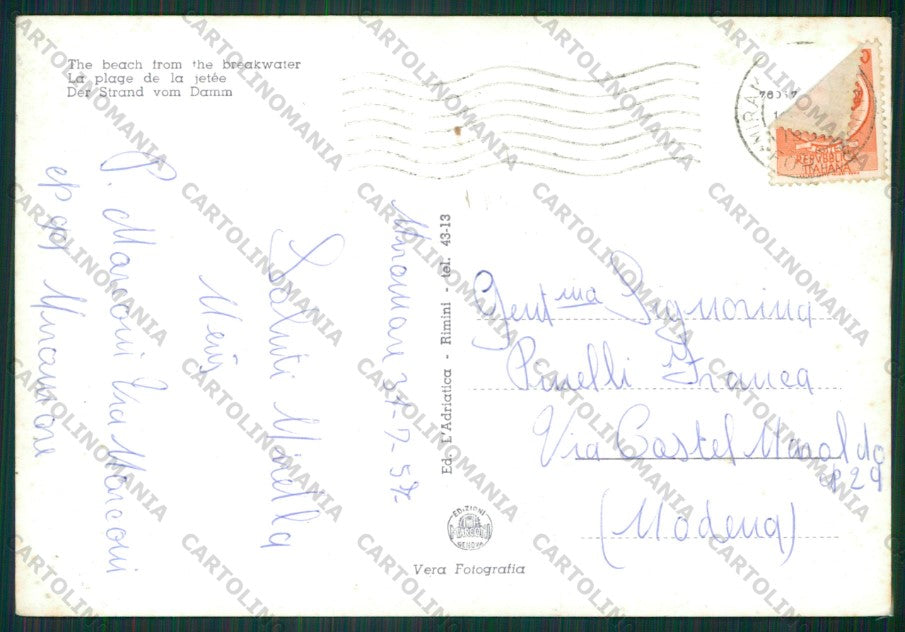 The beach from the breakwater
La plage de la jetée
Der Strand vom Damm
MIRAM
REPVBBLICA
ITALIANA
Miramare 31-7-57
Saluti Mirella
P. Marconi Via Marconi
Miramare
Ed. L'Adriatica - Rimini - tel. 43-13
Gent.ma Signorina
Pinelli Franca
Via Castel Maraldo
29
(Modena)
EDIZIONI
GENOVA
Vera Fotografia
CARTOLINOMANIA